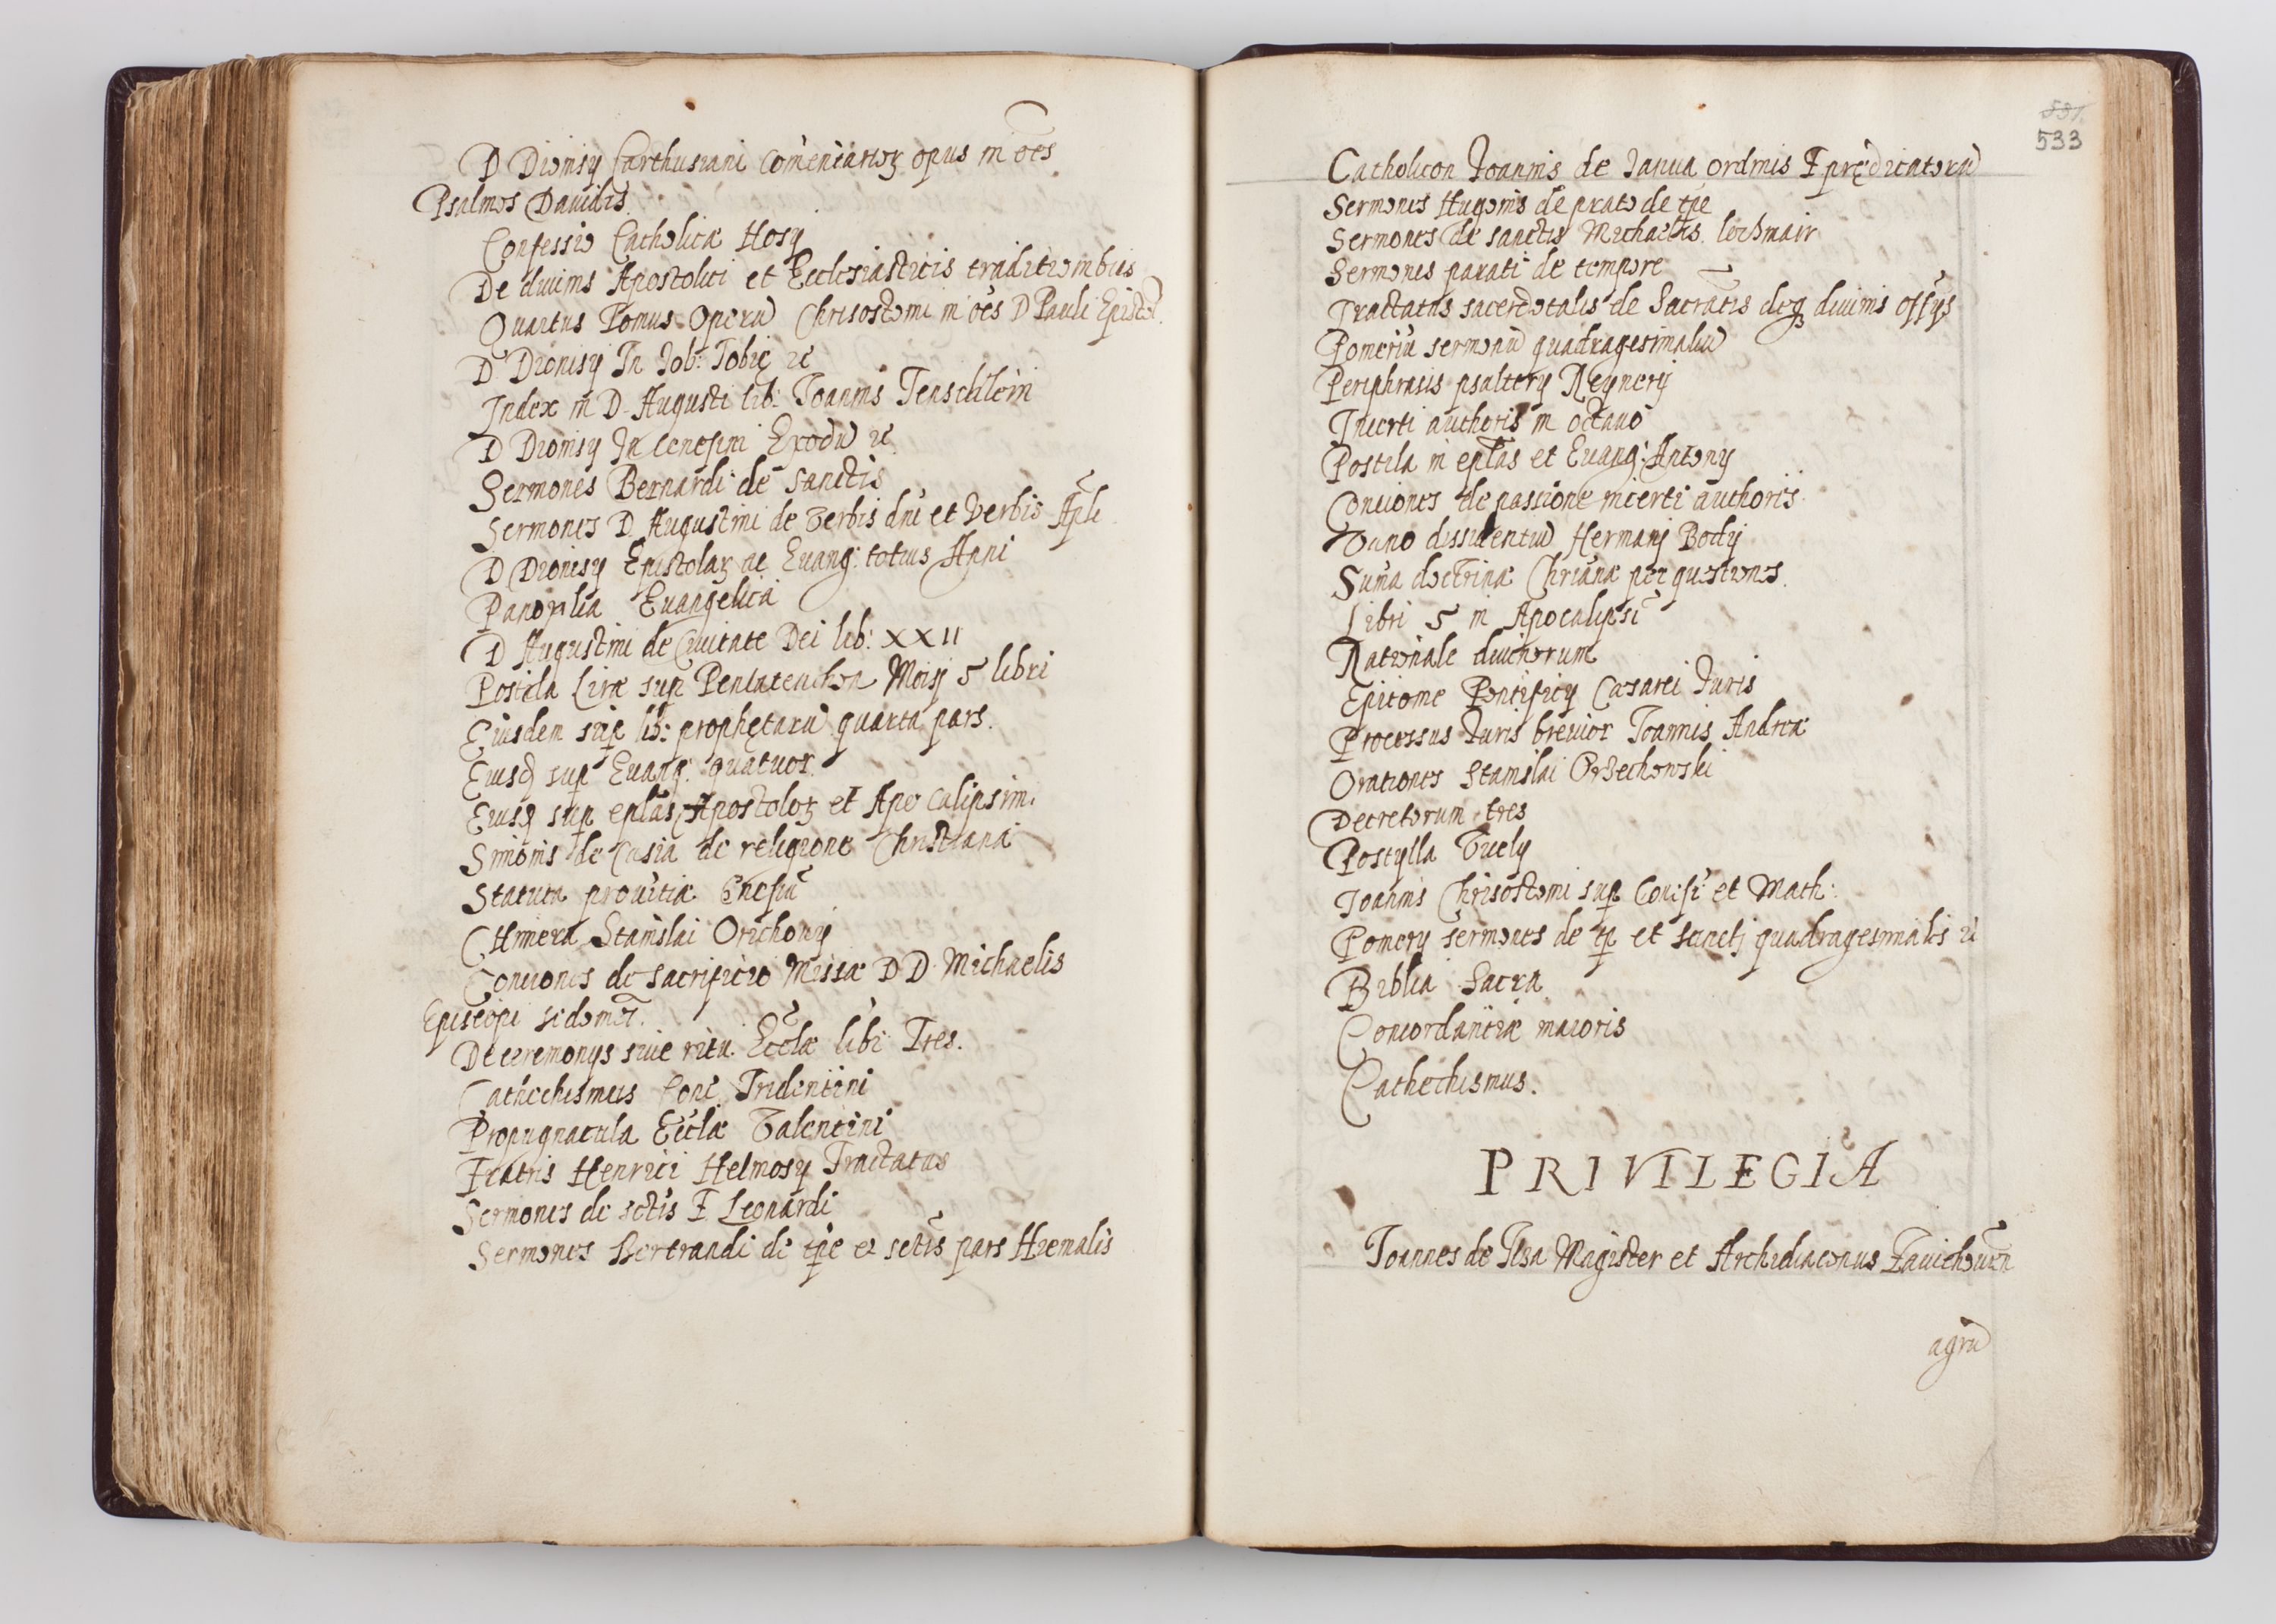 D Dionisy Carthusiani Comentarioꝝ opus in oēs
Psalmos Dauidis.
Confessio Catholicæ Hosy
De diuinis Apostolici et Ecclesiasticis traditionibus
Quartus Tomus Operū Chrisostomi in oēs D Pauli Epistol.
D Dionisy In Iob: Tobię ꝛc
Index in D. Augusti lib: Ioannis Tenschlein
D Dionisy In Genesim Exodū ꝛc
Sermones Bernardi de Sanctis
Sermones D Augustini de Verbis dni et Verbis Apli
D Dionisy Epistolaꝝ ac Euang: totius Anni
Panoplia Euangelica
D Augustini de Ciuitate Dei lib: XXII
Postila Liræ sup Pentateuchon Moisj 5 libri
Eiusdem sup lib: prophetarū quarta pars.
Eiusd sup Euang: quatuor.
Eiusd sup eplas Apostoloꝝ et Apo calipsim.
Simonis de Casia de religione Christiana
Statuta prouītiæ Gnesnē
CHimera Stanislai Orichouij
Conciones de sacrificio Missæ D D Michaelis
Episcopi sidoniē.
De ceremonys siue ritu Eccłæ libi Tres.
Cathechismus Conc. Tridentini
Propugnacula Eccłæ Valentini
Fratris Henrici Helmosy Tractatus
Sermones de sctis F Leonardi
Sermones Bertrandi de tpe et sctis pars Hiemalis
533
Catholicon Ioannis de Ianua ordinis F prędicatorū
Sermones Hugonis de prato de tpe
Sermones de sanctis Michaelis lochmair
Sermones parati de tempore
Tractatus sacerdotalis de Sacratis deqꝫ diuinis offys
Pomeriū sermonū quadragesimaliū
Periphrasis psaltery Reynery
Incerti authoris in octauo
Postila in eplas et Euang: Antony
Conciones de passione incerti authoris.
Vnio dissidentiū Hermanj Bodij
Suma doctrinæ Chrianæ per questiones.
libri 5 in Apocalipsi
Rationale diuinorum
Epitome Pontificy Cæsarei Iuris
Processus Iuris breuior Ioannis Andreæ
Orationes Stanislai Orzechowski
Decretorum tres
Postylla Vuely
Ioannis Chrisostomi sup Genesi et Math:
Pomery sermones de tp et sanctj quadragesimalis ꝛc
Biblia Sacra
Concordantiæ maioris
Cathechismus.
PRIVILEGIA
Ioannes de Magister et Archidiaconus Zauichouīn
agrū